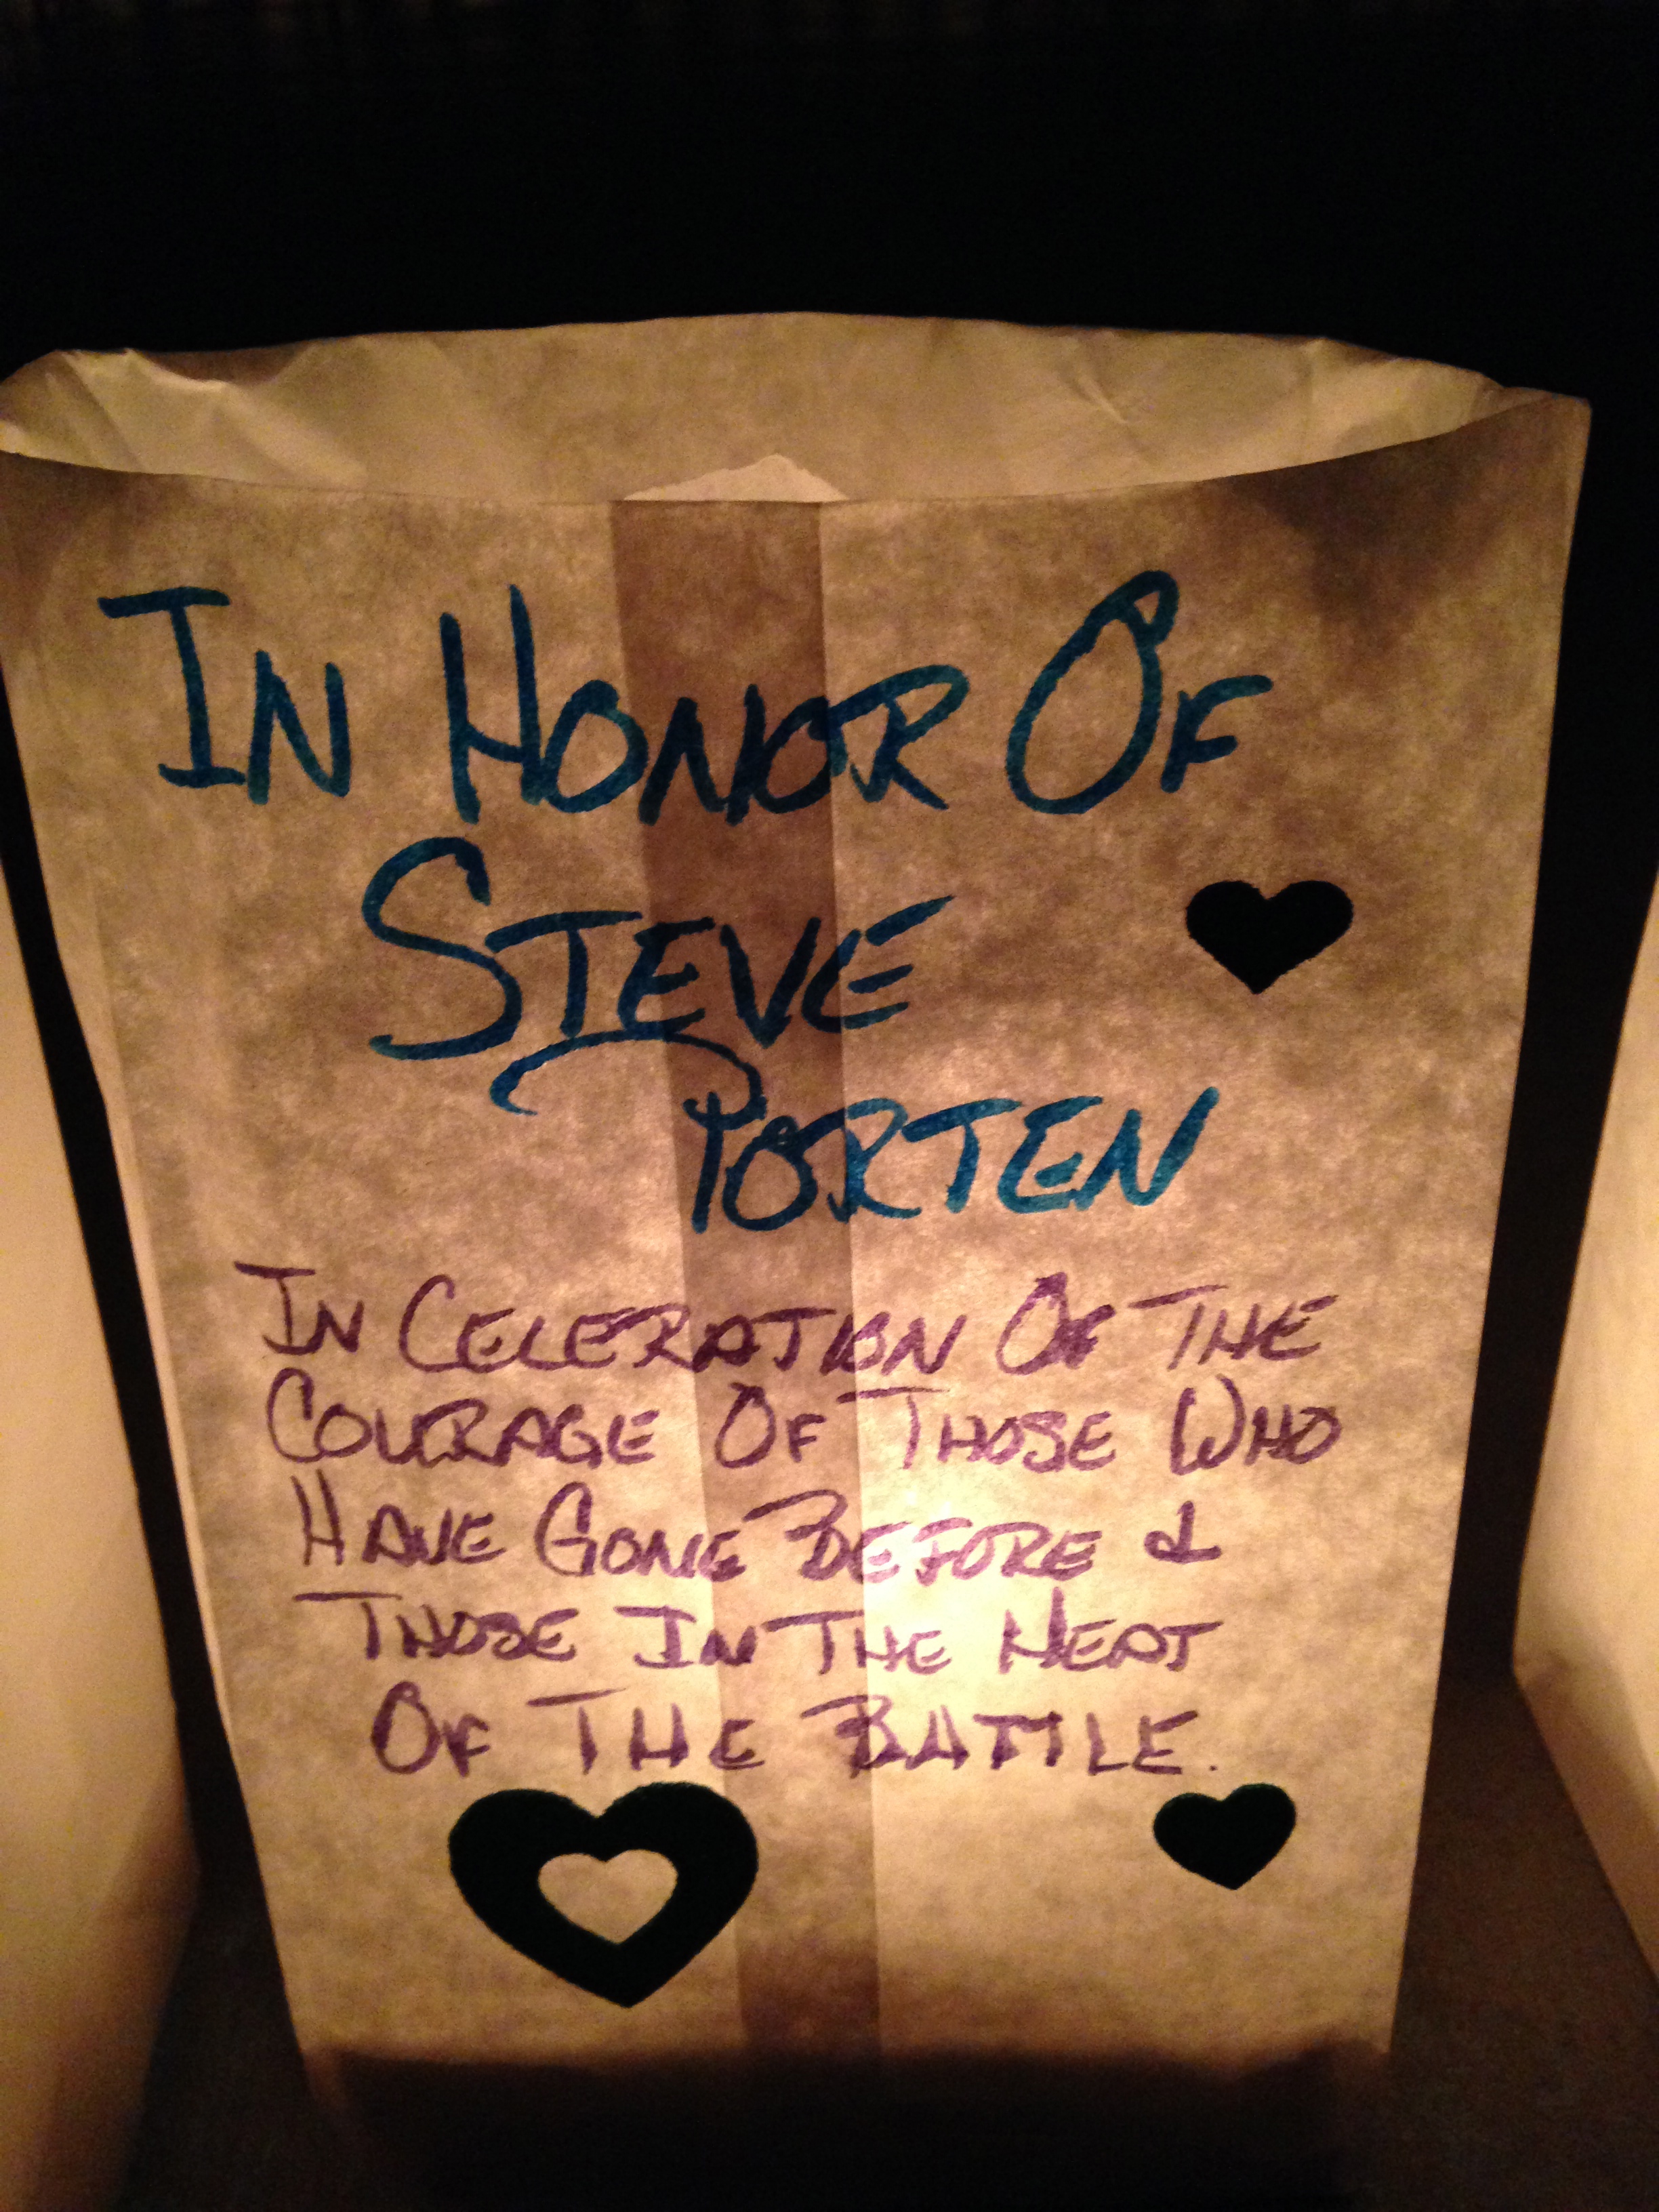 In Honor Of
Steve
Porten
In Celeration Of The
Courage Of Those Who
Have Gone Before &
Those In The Heat
Of The Battle.